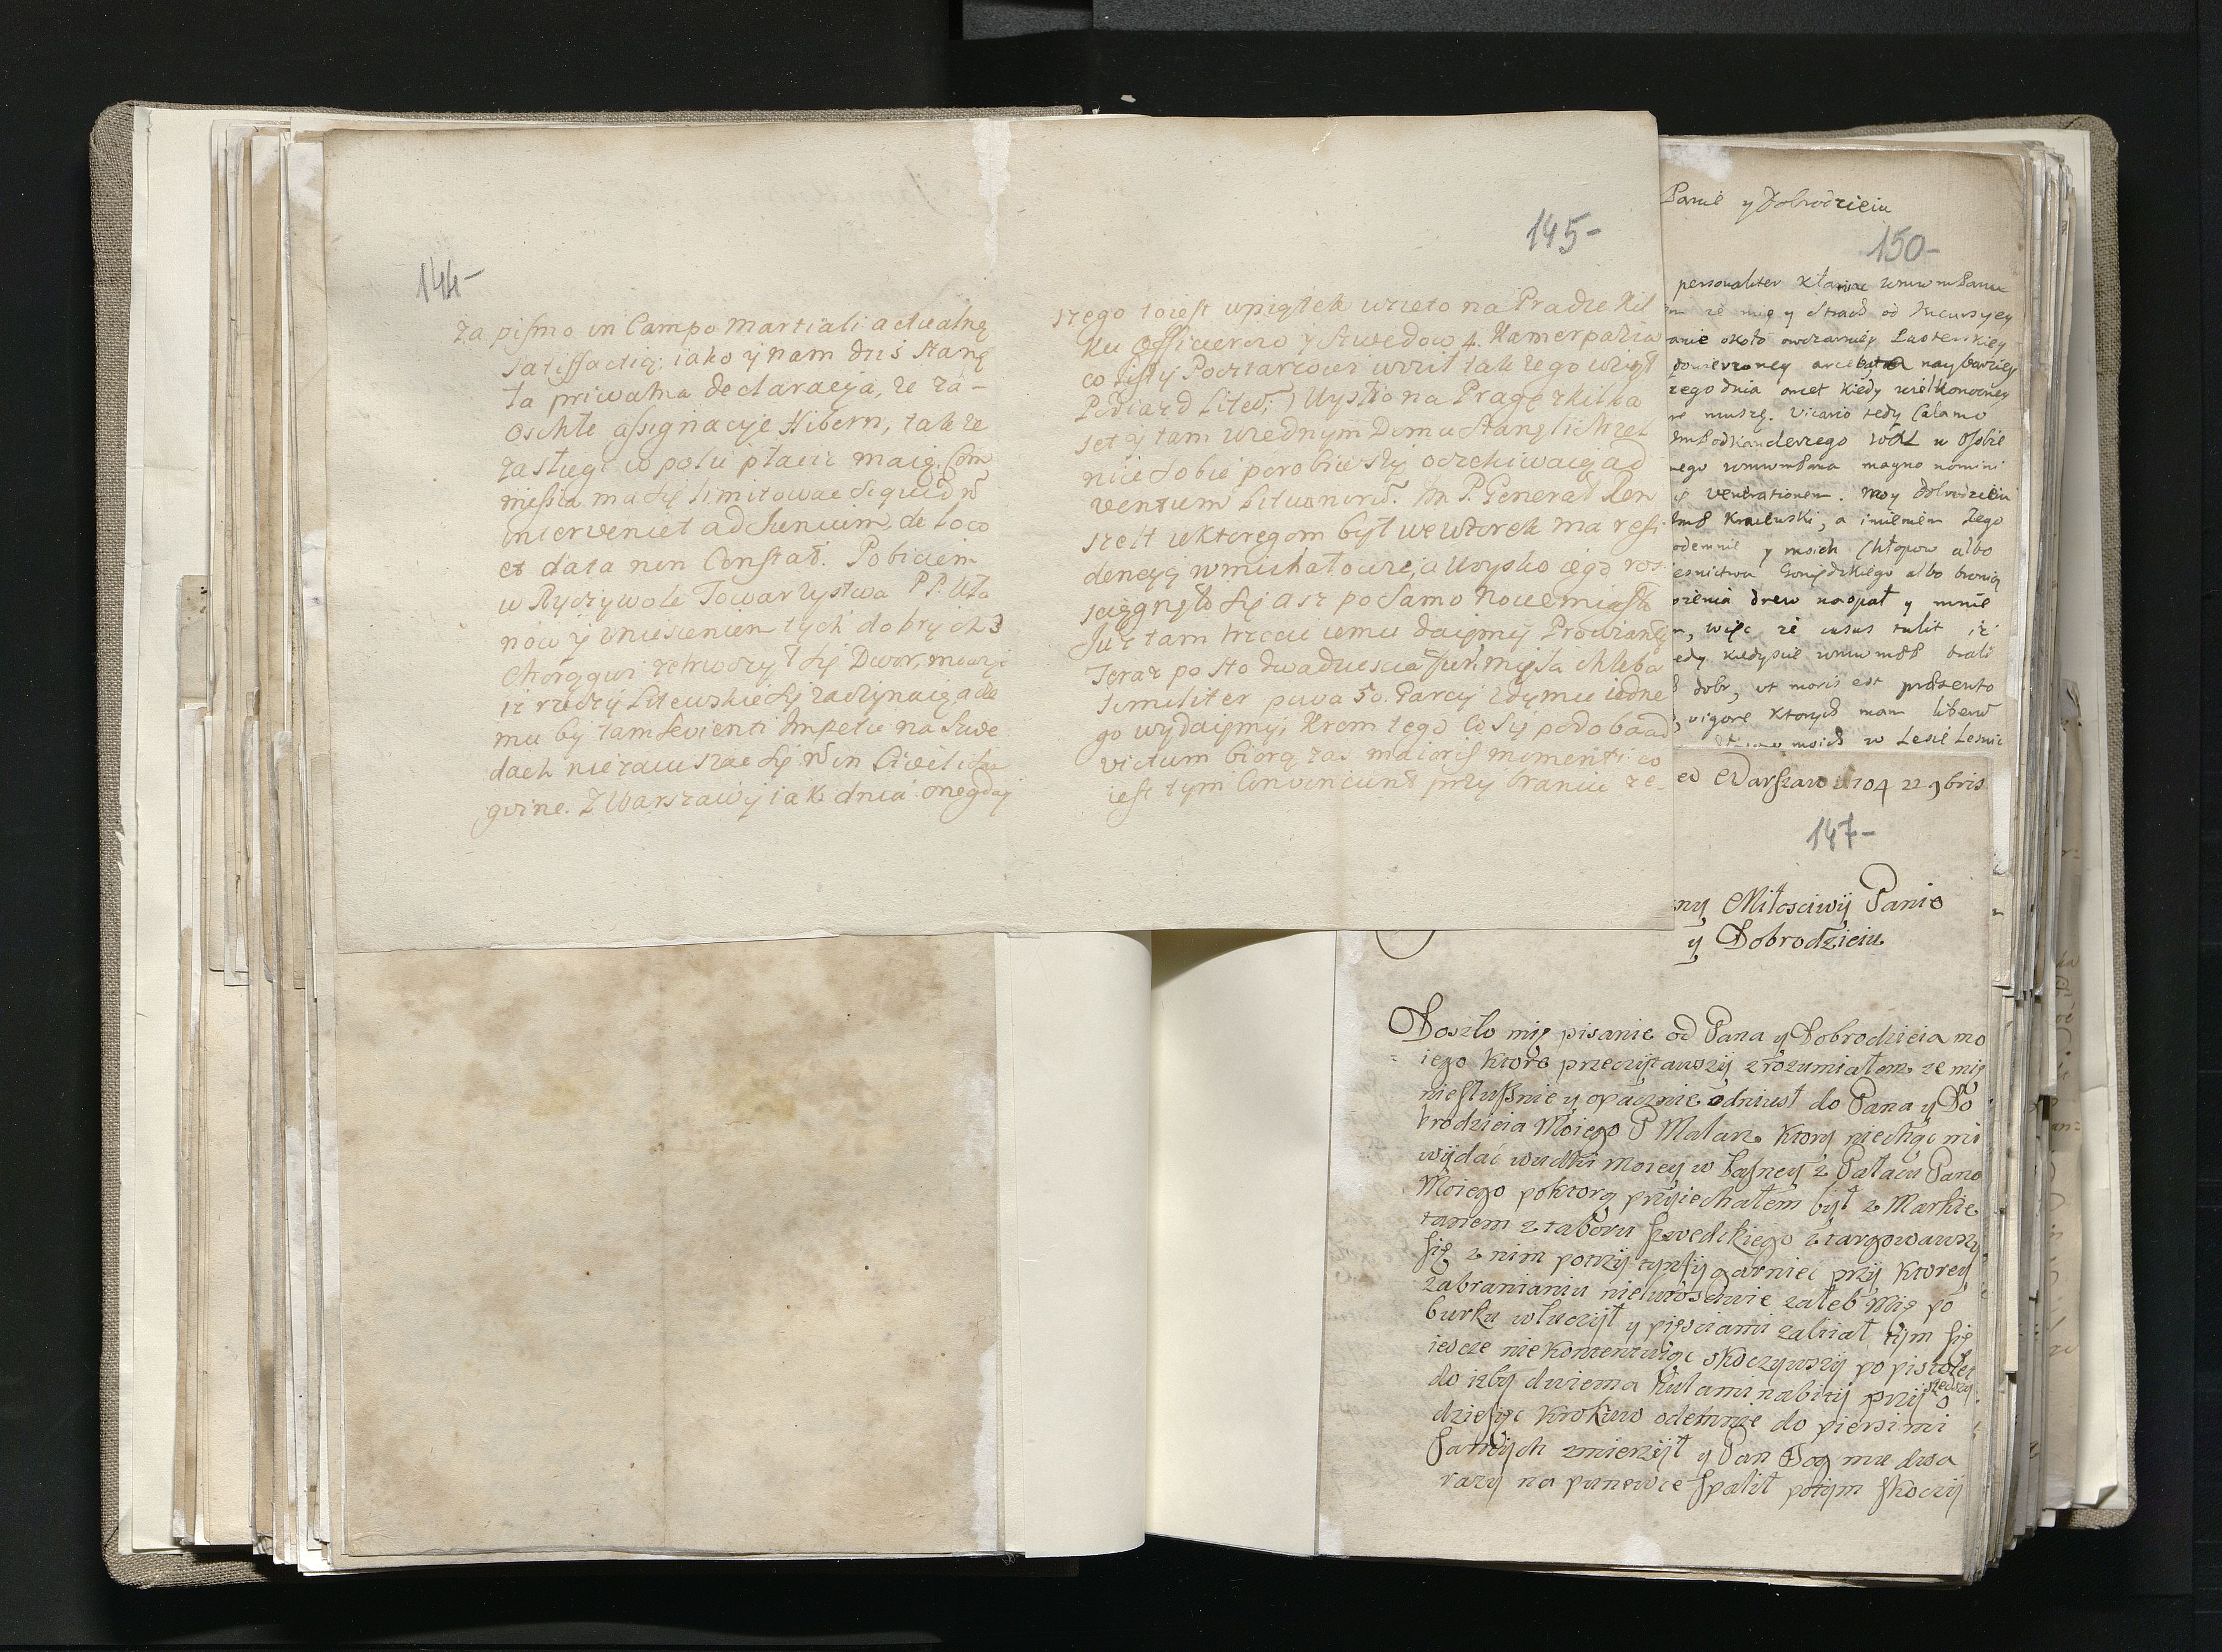 144-
za pismo in Campo Martiali actualną
satisfactią; iako y nam dziś stanę
ta priwatna declaracyja, ze za-
oschłe assignacyje Hibern, także
zasługi w polu płacić maią, Com
missia ma się limitowac siquid nō
interveniet ad Junium, de loco
et data non Constat. Pobiciem
w Ryczywole Towarzystwa PP. Uła
nów y zniesieniem tych dobrych 3
Chorągwi zetrwożył się Dwor, mowią
iz rzeczy Litewskie się zaczynaią ale
mu by tam sevienti Impetu na Szwe
dach nie zawszae się nō in Civili San
gvine. Z Warszawy iak dnia onegday
145-
szego toiest wpiątek wzieto na Pradze kil
ku Officierow y Szwedow 4. Kamerpazia
co listy Pocztarzowi woził także go wziął
Podiazd Litew: Wyszło na Pragę z kilka
set y tam w iednym Domu stanęli strzel
nice sobie porobiwszy oczekiwaią ad
ventum Lituanorū. Im P. Generał Ren
szelt u ktoregom był we wtorek ma resi
dencyą w Michałowie, a Woysko iego ros
sciągnęło się asz po Samo Nowemiasto
Już tam trzeci iemu daiemy Prowiant
Teraz po sto dwadziescia funt. mięsa chleba
similiter piwa 50. Garcy z dymu iedne
go wydaiemy, krom tego co się podoba ad
victum biorą zas maioris momenti co
iest tym Conveniunt przy braniu ze-
Panie y Dobrodzieiu
150-
personaliter kłaniac wmwmPanu
ze mię y strach od Incursyey
anie około owczarniey Lasterskiey
naybarziey
rego dnia onet kiedy wielkonocney
muszę. Vicario tedy Calamo
w osobie
nego wmwmPana magno nomini
venerationem. Moy Dobrodzieiu
Kraiewski, a imieniem Jego
odemnie y moich Chłopow albo
esnictwa Goniędzkiego albo bronią
zenia drew na opał y mnie
, więc ze usus tulit iz
edy kiedysie wmwmPP brali
dobr, ut moris est praesento
, vigore ktorych mam liberū
moich w Lesie Lesnic
ed Warszaw 1704 22 9bris
147-
ny Miłosciwy Panie
y Dobrodzieiu
Doszło mię pisanie od Pana y Dobrodzieia mo
iego ktore przeczytawszy zrozumiałem ze mię
niesłusznie y opacznie odniusł do Pana y Do
brodzieia Moiego P Malarz ktory niechcąc mi
wydać wudki moiey własney z Pałacu Pana
Moiego poktorą przyiechałem był z Markie
tanem z taboru szwedzkiego ztargowawszy
się z nim potrzy tynfy garniec przy ktorey
zabranianiu niewłosciwie załeb mię po
burku włuczył y pięsciami zabiiał tym się
iescze niekontentuiąc skoczywszy po pistolet
do izby dwiema kulami nabity przyszedszy o
dziesięc krokuw odemnie do piersi mi
samych zmierzył y Pan Bog mu dwa
razy na panewce spalił potym skoczy